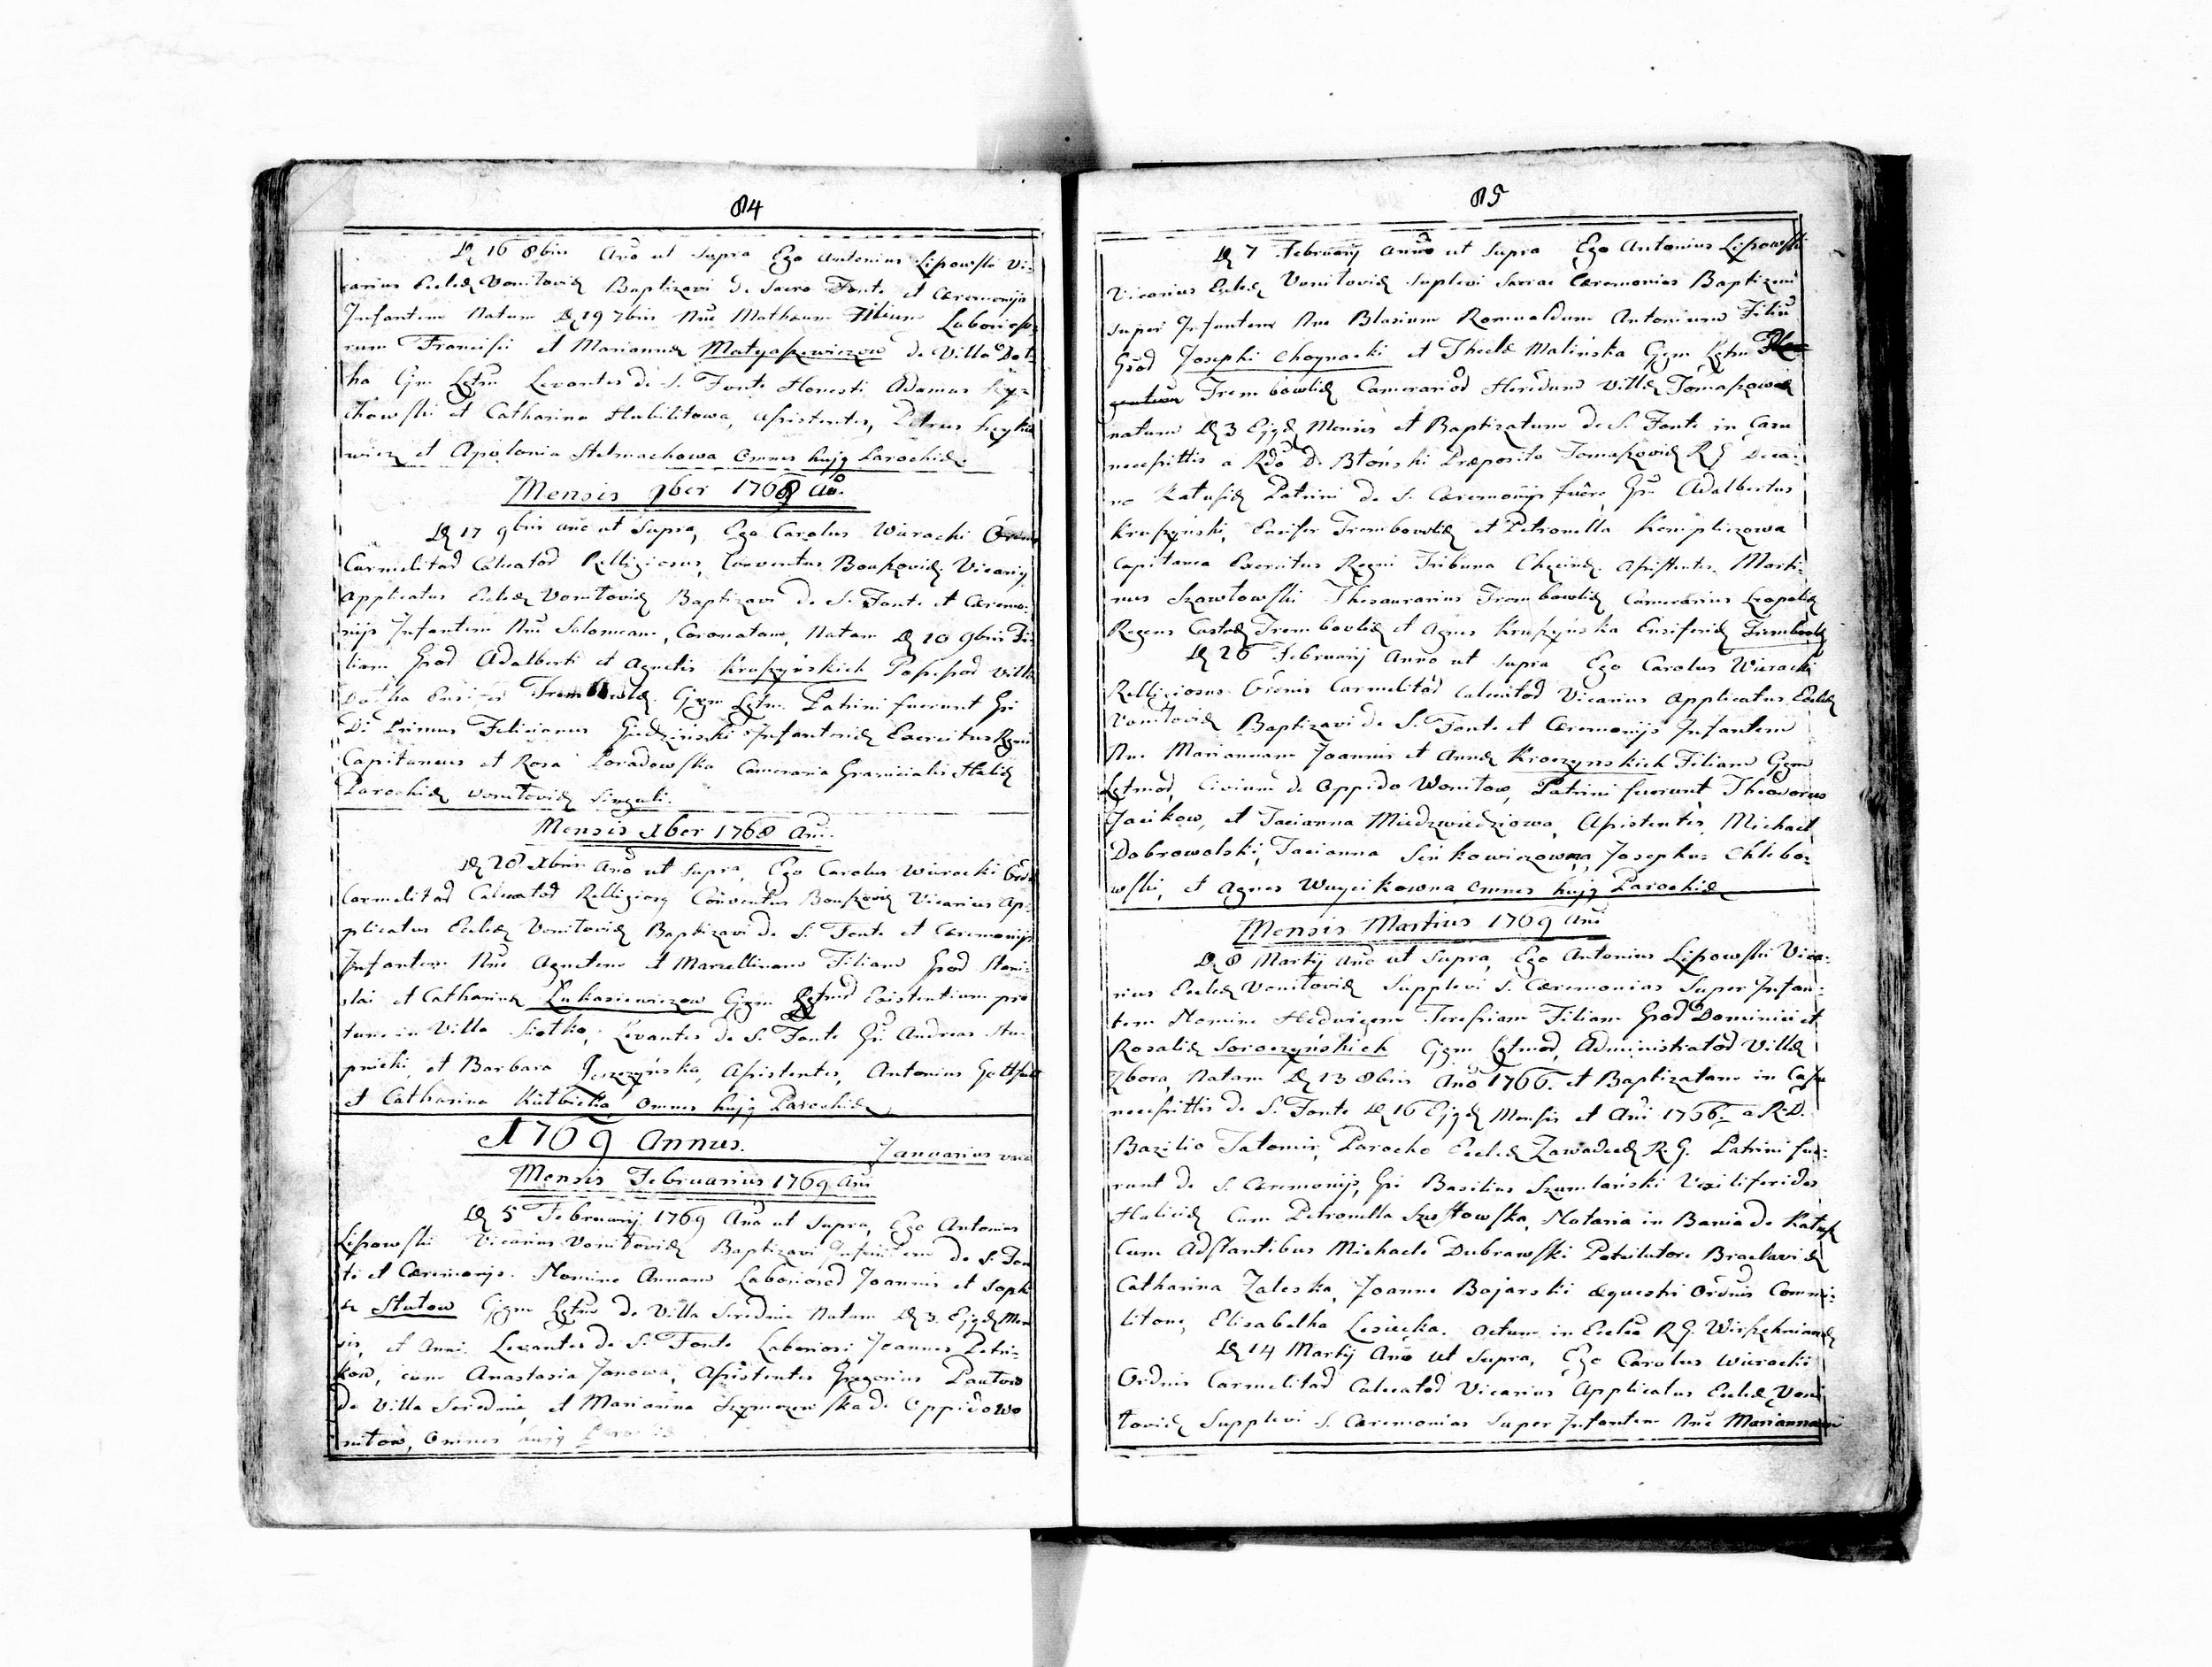 84
16 8bris Año ut Supra Ego Antonius Lipowski Vi-
carius Eccl Vonitovi Baptizavi de Sacro Fonte et Cæremonijs
Infantem Natum 19 7bris Nñe Mathæum Filium Laborioso-
rum Francisci et Mariannæ Matyaszewiczow de Villa Dot-
ha Cjm Lgtm Levantes de S. Fonte Honesti Adamus
chowski et Catharina Hubilitowa, assistentes, Petrus
wicz et Apolonia Stelmachowa omnes hujq Parochiæ.
Mensis 9ber 1768 Añ.
17 9bris año ut Supra, Ego Carolus Wiaracki
Carmelitað Calceatoð Relligiosus, Conventus Bouszovi Vicarig
applicatus Eccl Vonitovi Baptizavi de S. Fonte et Cæremo-
nijs Infantem Nñe Salomeam, Coronatam, Natam 10 9bris Fi-
liam Gsod Adalberti et Agnetis Kruszyńskich Possessod Villæ
Dotha Ensifer Trembowlæ Cjgm Lgtm. Patrini fuerunt Gsi
Di Primus Felicianus Giedzinski Infanteriæ Exercitus Regni
Capitaneus et Rosa Poradowska Cameraria Granicialis Halic
Parochiæ Vonitoviæ singuli.
Mensis Xber 1768 Añi.
28 Xbris Año ut Supra, Ego Carolus Wiaracki
Carmelitað Calceatoð Relligiosq Conventus Bouszovi Vicarius Ap-
plicatus Eccl Vonitovi Baptizavi de S. Fonte et Cæremonijs
Infantem Nñe Agnetem et Marcellinam Filiam Gsod Stani-
slai et Catharinæ Łukasiewiczow Cjgm Lgtmð Existentium pro
tunc in Villa Siotko, Levantes de S. Fonte Gsi Andreas Stu-
pnicki, et Barbara Jerzyńska, Assistentes, Antonius
et Catharina Kulbicka omnes hujq Parochiæ
1769 Annus. Januarius
Mensis Februarius 1769 Añi
5 Februarij 1769 Año ut Supra, Ego Antonius
Lipowski Vicarius Vonitovi Baptizavi Infantem de S. Fon
te et Cæremonijs. Nomine Annam Laboriosod Joannis et Soph
æ Stutow Cjgm Lgtm de Villa Serednie Natam 3 Ejqd Men
sis, et Anni. Levantes de S. Fonte Laboriosi Joannes Petri-
kow, cum Anastasia Janowa, Assistentes Gregorius Pautow
de Villa Serednie, et Marianna Szymczewska de Oppido Wo
nitow, Omnes hujq
85
7 Februarij Anno ut Supra Ego Antonius Lipowski
Vicarius Eccl Vonitovi Suplevi Sacras Cæremonias Baptizmi
super Infantem Nñe Blasium Romualdum Antonium Filiũ
Gsod Josephi Choynacki et Theclæ Malińska Cjgm Lgtm
Trembowliæ Camerarioð Heredum Villæ Tomaszowce
natum 3 Ejqd Mensis et Baptizatum de S. Fonte in Casu
necessittis a Rdo D. Błoński Præposito Tomaszovi R G Deca-
no Kalusi Patrini de S. Cæremonijs fuere Gsi Adalbertus
Kruszyński, Ensifer Trembowliæ et Petronella Kempliczowa
Capitanea Exercitus Regni Tribuna Assistentes Marti-
nus Szawłowski Thesaurarius Trembowliæ Camerarius Leopoli
Regens Trembowliæ et Agnes Kruszyńska Ensiferiæ Trembowl
26 Februarij Anno ut Supra Ego Carolus Wiaracki
Relligiosus Ordinis Carmelitað Calceatoð Vicarius Applicatus Eccl
Vonitovi Baptizavi de S. Fonte et Cæremonijs Infantem
Nñe Mariannam Joannis et Annæ Kroczynskich Filiam Cjgm
Lgtmoð, Civium de Oppido Wonitow, Patrini fuerunt Theodorus
Jacikow, et Tacianna Miedzwiedziowa, Assistentes, Michael
Dobrowolski, Tacianna Sińkowiczowna, Josephus Chlebo-
wski, et Agnes Wuycikowna omnes hujq Parochiæ
Mensis Martius 1769 Añi
8 Martij Año ut Supra, Ego Antonius Lipowski Vica-
rius Eccl Vonitovi Supplevi S. Cæremonias Super Infan-
tem Nomine Hedvigem Teressiam Filiam Gsod Dominici et
Rosaliæ Soroczyńskich Cjgm Lgtmoð, Administratoð Villæ
Zbora, Natam 13 8bris Año 1766. et Baptizatam in Casu
necessittis de S. Fonte 16 Ejqd Mensis et Añi 1766. a R.D.
Bazilio Tatomir, Parocho Eccl Zawadec R. G. Patrini fue-
runt de S. Cæremonijs, Gsi Basilius Szumlański Vexiliferides
Halici Cum Petronella Szostowska, Notaria in Bania de Kalusz
Cum Adstantibus Michaele Dubrawski Potvilitore Braclavi
Catharina Zaleska, Joanne Bojarski æquestri Ordinis Commi-
litone, Elisabetha Lesiecka. Actum in Ecclia R G.
14 Martij Año ut Supra, Ego Carolus Wiaracki
Ordinis Carmelitað Calceatoð Vicarius Applicatus Eccl Voni
tovi Supplevi S. Cæremonias Super Infantem Nñe Mariannam